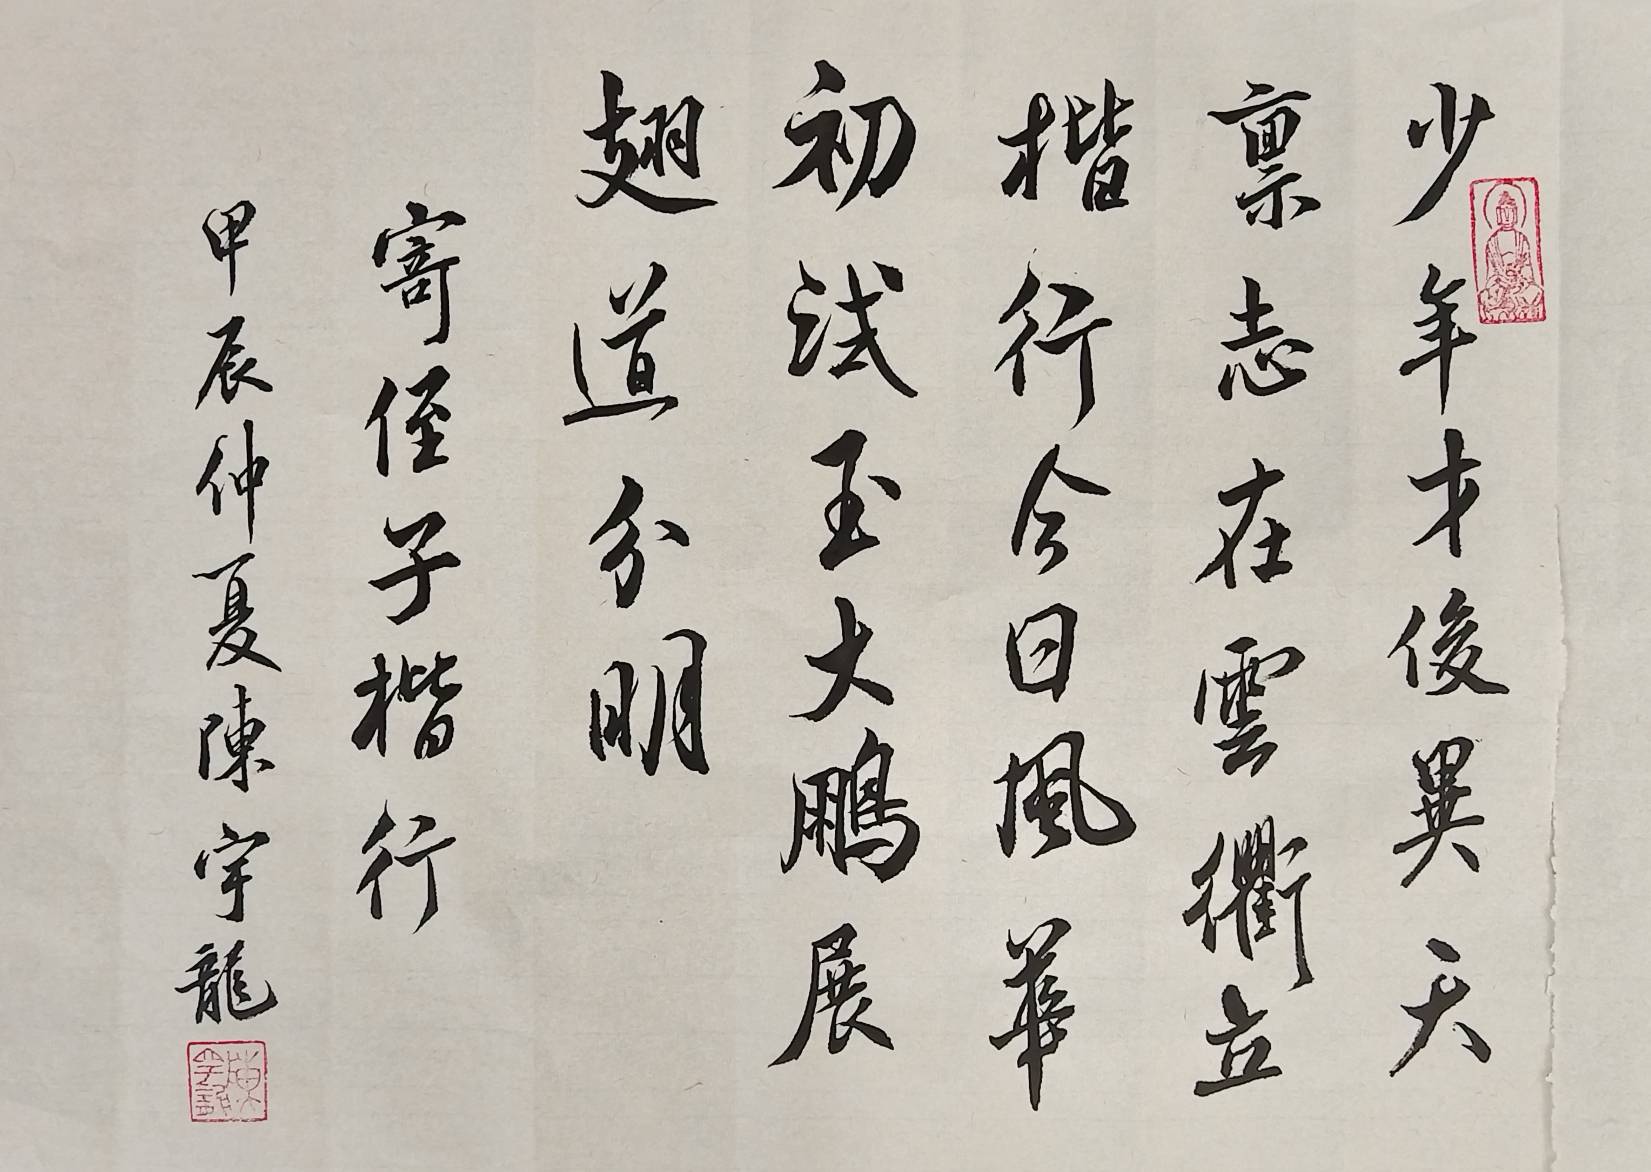 少年才俊異天
禀志在雲衢立
楷行今日風華
初試玉大鵬展
翅道分明
寄侄子楷行
甲辰仲夏陳宇龍